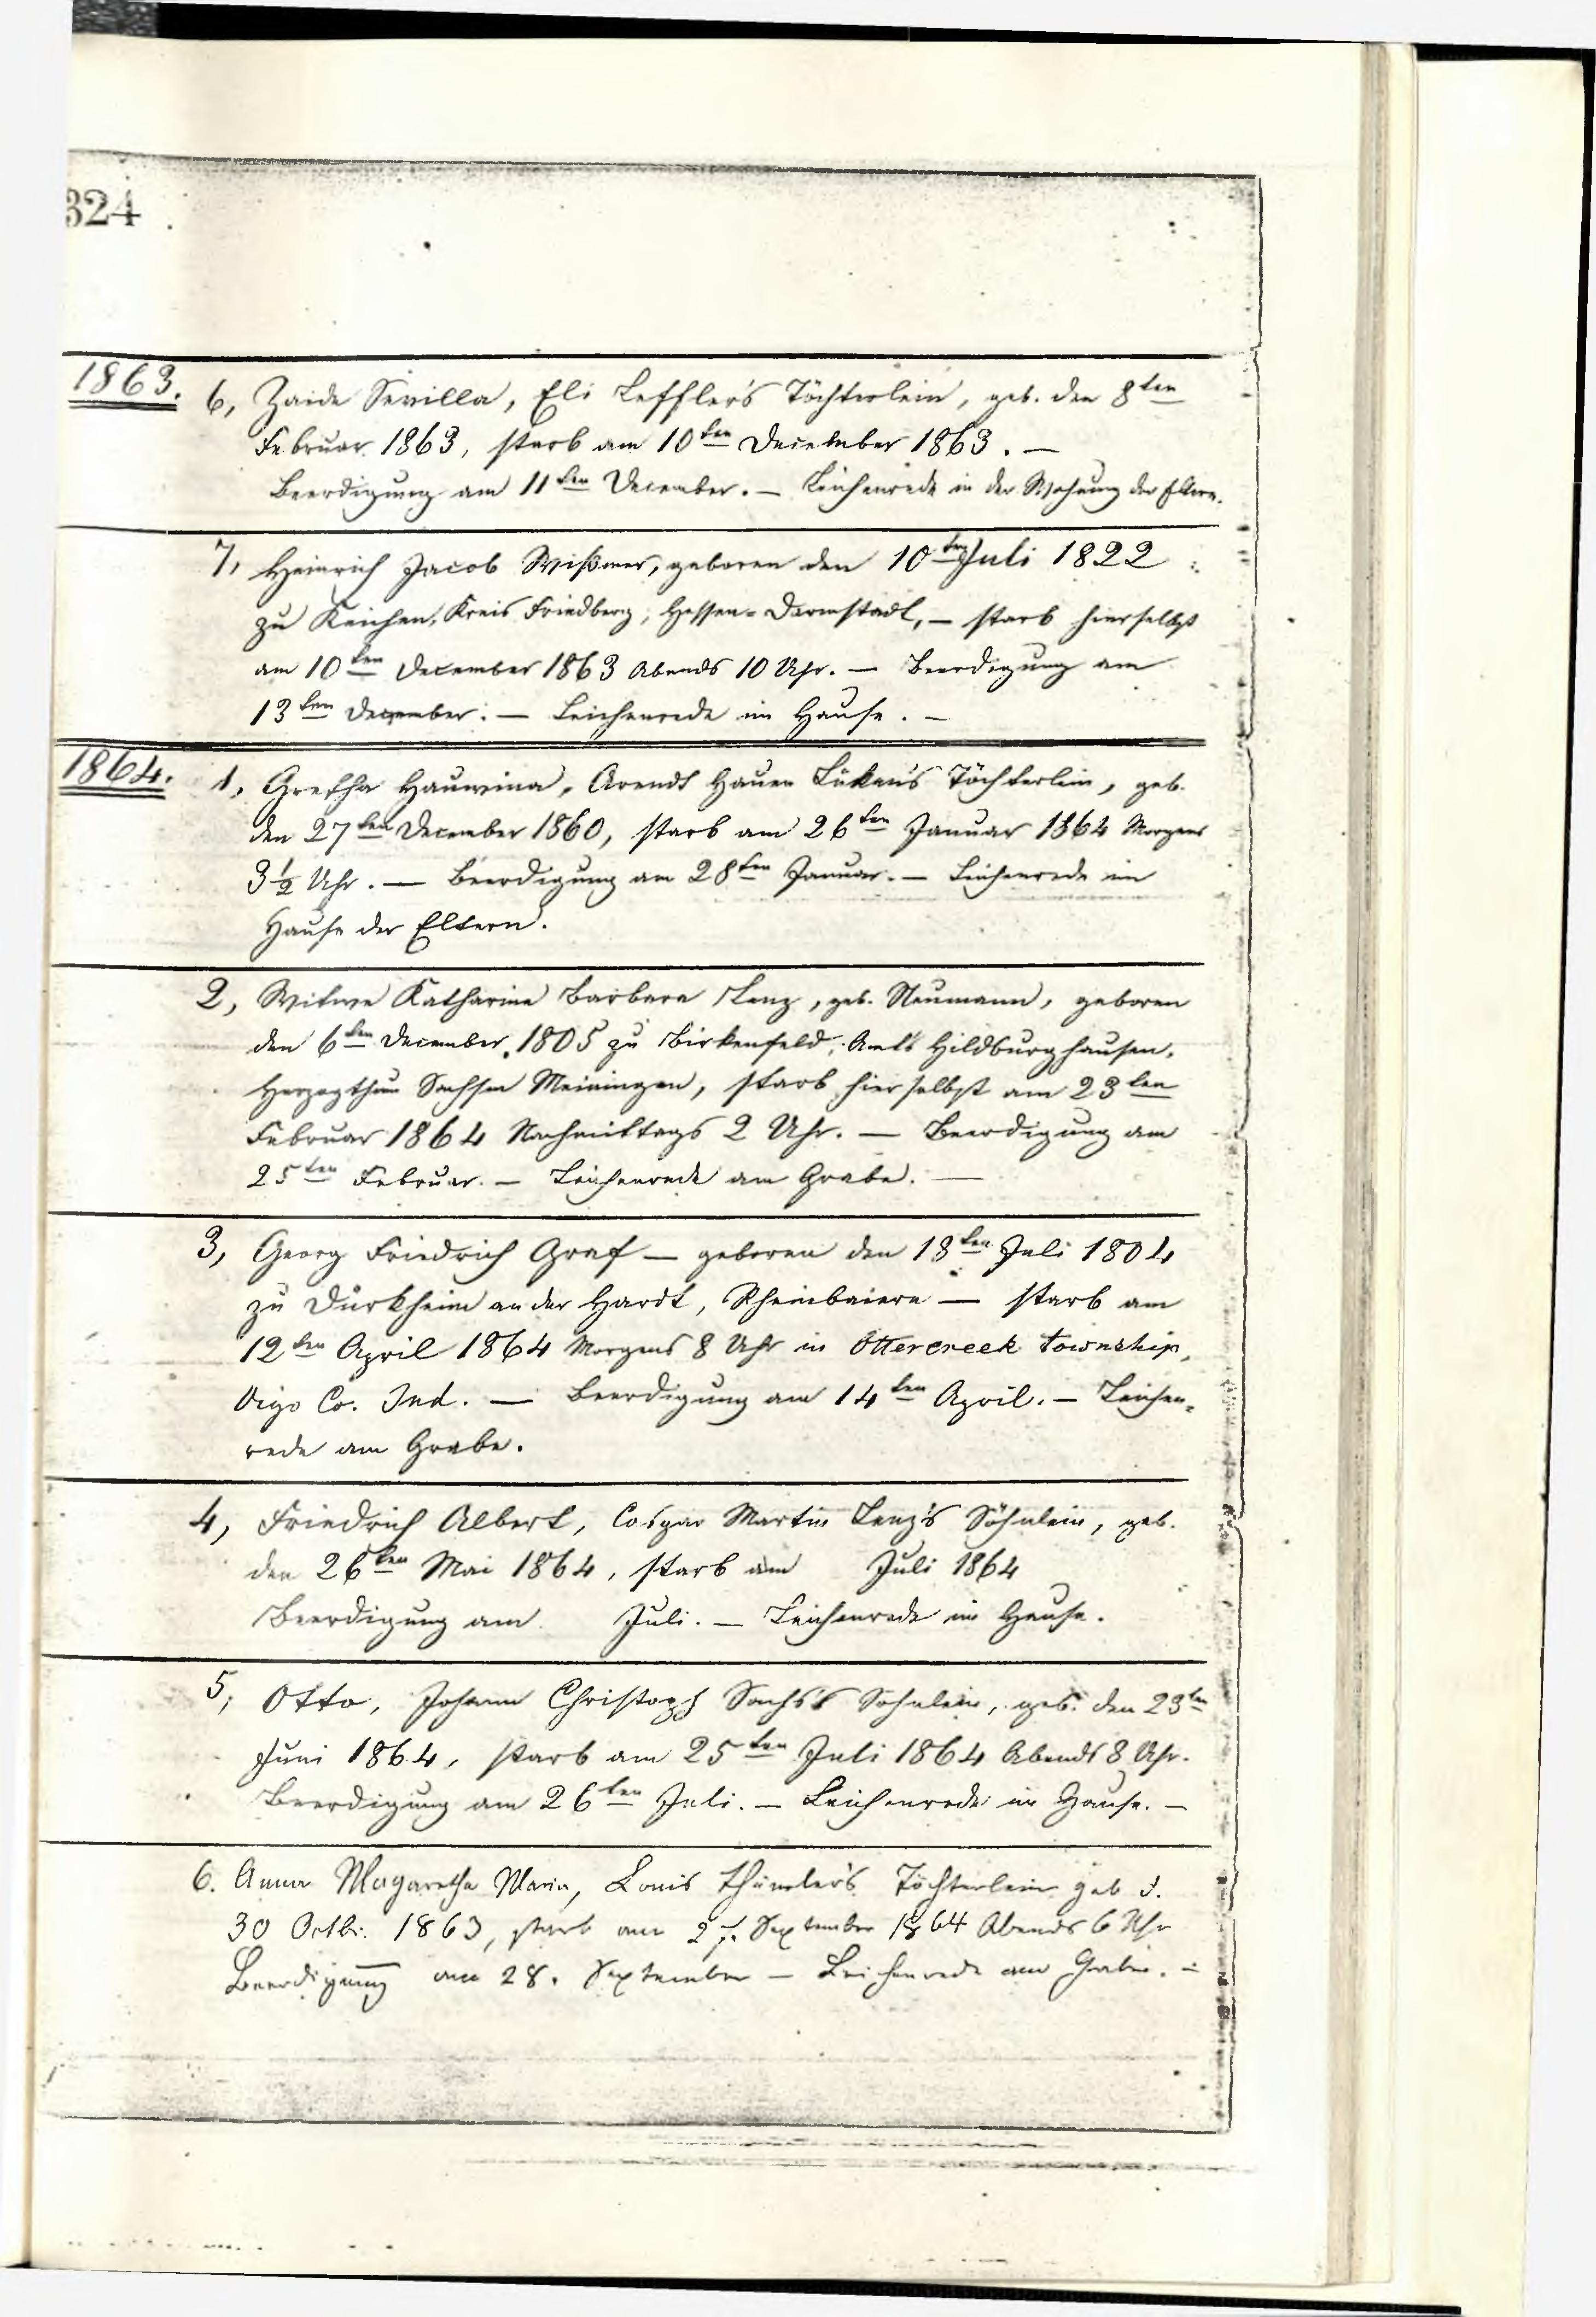 324
1863. 6, Zaide Sevilla, Eli Leffler's Töchterlein, geb. den 8ten
Februar 1863, starb am 10ten December 1863. —
Beerdigung am 11ten December. — Leichenrede in der Wohnung der Eltern.
7, Heinrich Jacob Wißmer, geboren den 10ten Juli 1822
zu Kaichen, Kreis Friedberg, Hessen-Darmstadt, — starb hierselbst
am 10ten December 1863 Abends 10 Uhr. — Beerdigung am
13ten December. — Leichenrede im Hause. —
1864. 1, Gretha Hauwina, Arendt Hauen Lüken's Töchterlein, geb.
den 27ten December 1860, starb am 26ten Januar 1864 Morgens
3½ Uhr. — Beerdigung am 28ten Januar. — Leichenrede im
Hause der Eltern.
2, Witwe Katharina Barbara Lenz, geb. Neumann, geboren
den 6ten December 1805 zu Birkenfeld, Amts Hildburghausen,
Herzogthum Sachsen Meiningen, starb hierselbst am 23ten
Februar 1864 Nachmittags 2 Uhr. — Beerdigung am
25ten Februar. — Leichenrede am Grabe. —
3, Georg Friedrich Graf — geboren den 18ten Juli 1804
zu Dürkheim an der Hardt, Rheinbaiern — starb am
12ten April 1864 Morgens 8 Uhr in Ottercreek township,
Vigo Co. Ind. — Beerdigung am 14ten April. — Leichen-
rede am Grabe.
4, Friedrich Albert, Caspar Martin Lenz's Söhnlein, geb.
den 26ten Mai 1864, starb am Juli 1864
Beerdigung am Juli. — Leichenrede im Hause.
5, Otto, Johann Christoph Sachs's Söhnlein, geb. den 23ten
Juni 1864, starb am 25ten Juli 1864 Abends 8 Uhr.
Beerdigung am 26ten Juli. — Leichenrede im Hause. —
6. Anna Magaretha Maria, Louis Thümler's Töchterlein geb d.
30 Octbr. 1863, starb am 27. September 1864 Abends 6 Uhr
Beerdigung am 28. September — Leichenrede am Grabe. —